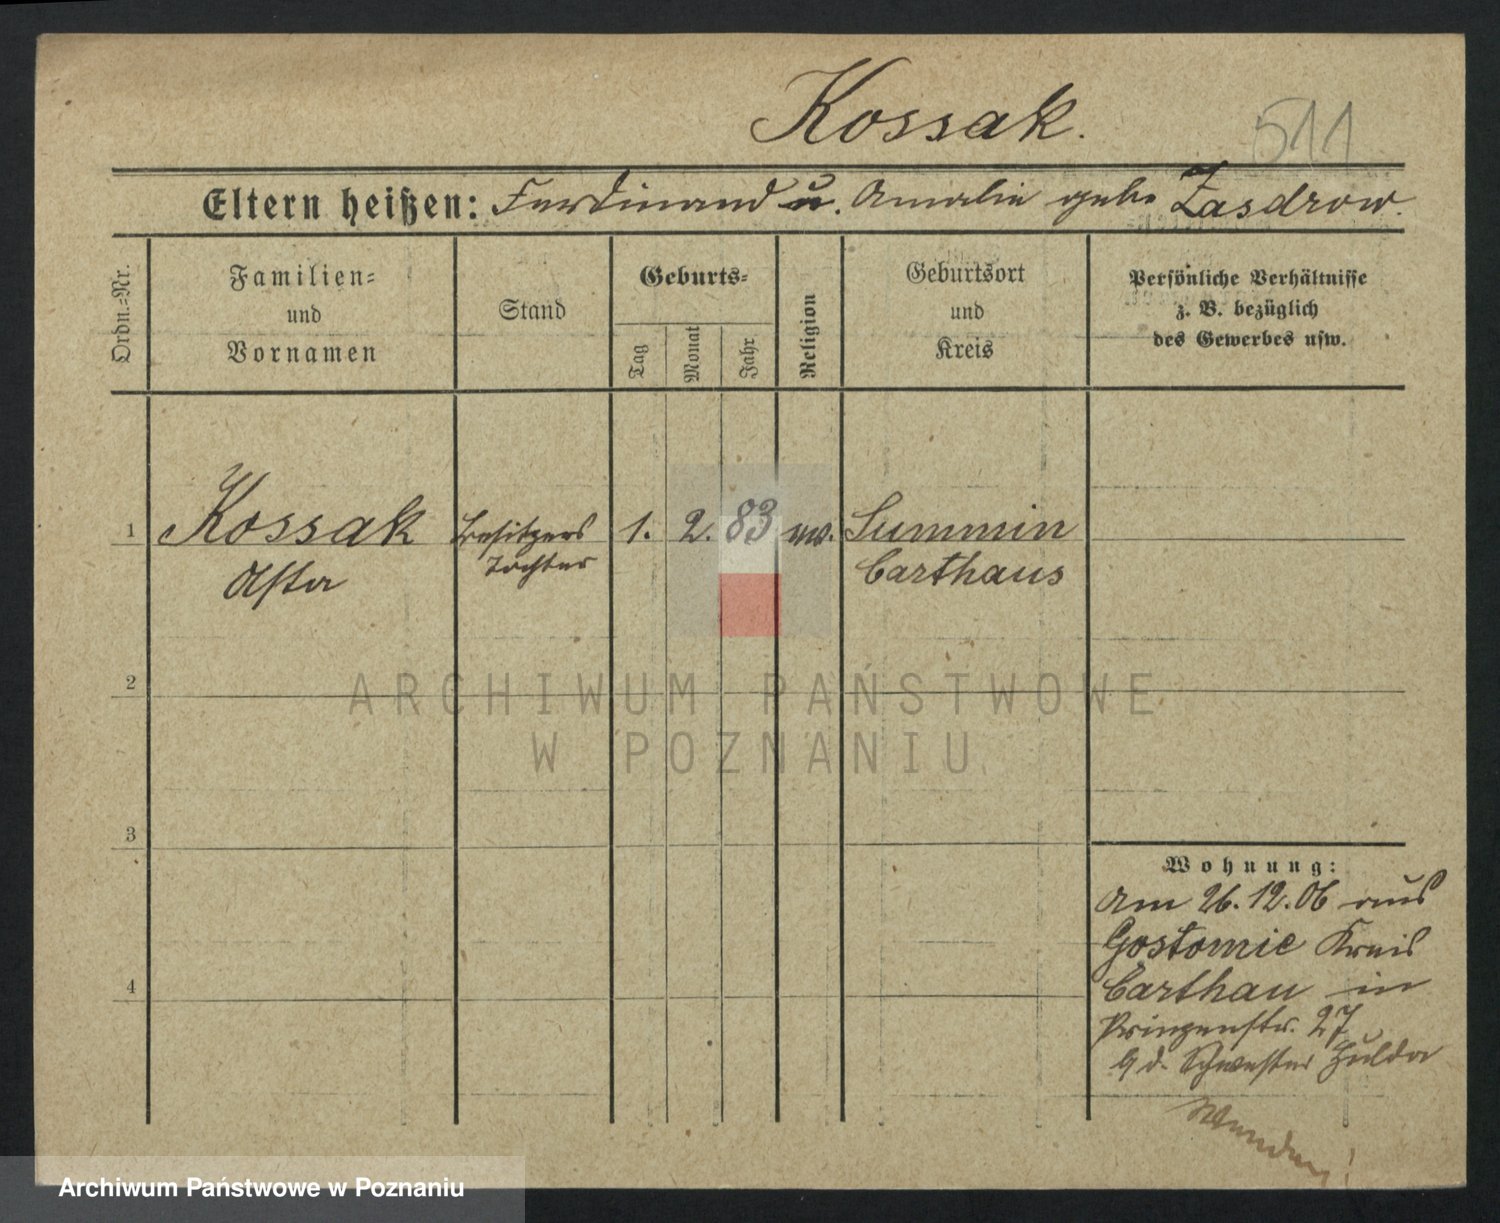 Kossak.
511
Eltern heißen: Ferdinand u. Amalie geb. Zasdrow.
Ordn.-Nr.
Familien-
und
Vornamen
Stand
Geburts-
Tag
Monat
Jahr
Religion
Geburtsort
und
Kreis
Persönliche Verhältnisse
z. B. bezüglich
des Gewerbes usw.
1 Kossak Besitzers 1. 2. 83 ev. Summin
Asta Tochter Carthaus
2
ARCHIWUM PAŃSTWOWE
W POZNANIU
3
Wohnung:
Am 26.12.06 aus
Gostomie Kreis
4 Carthau in
Prinzenstr. 27
b d. Schwester Hulda
Wenden!
Archiwum Państwowe w Poznaniu